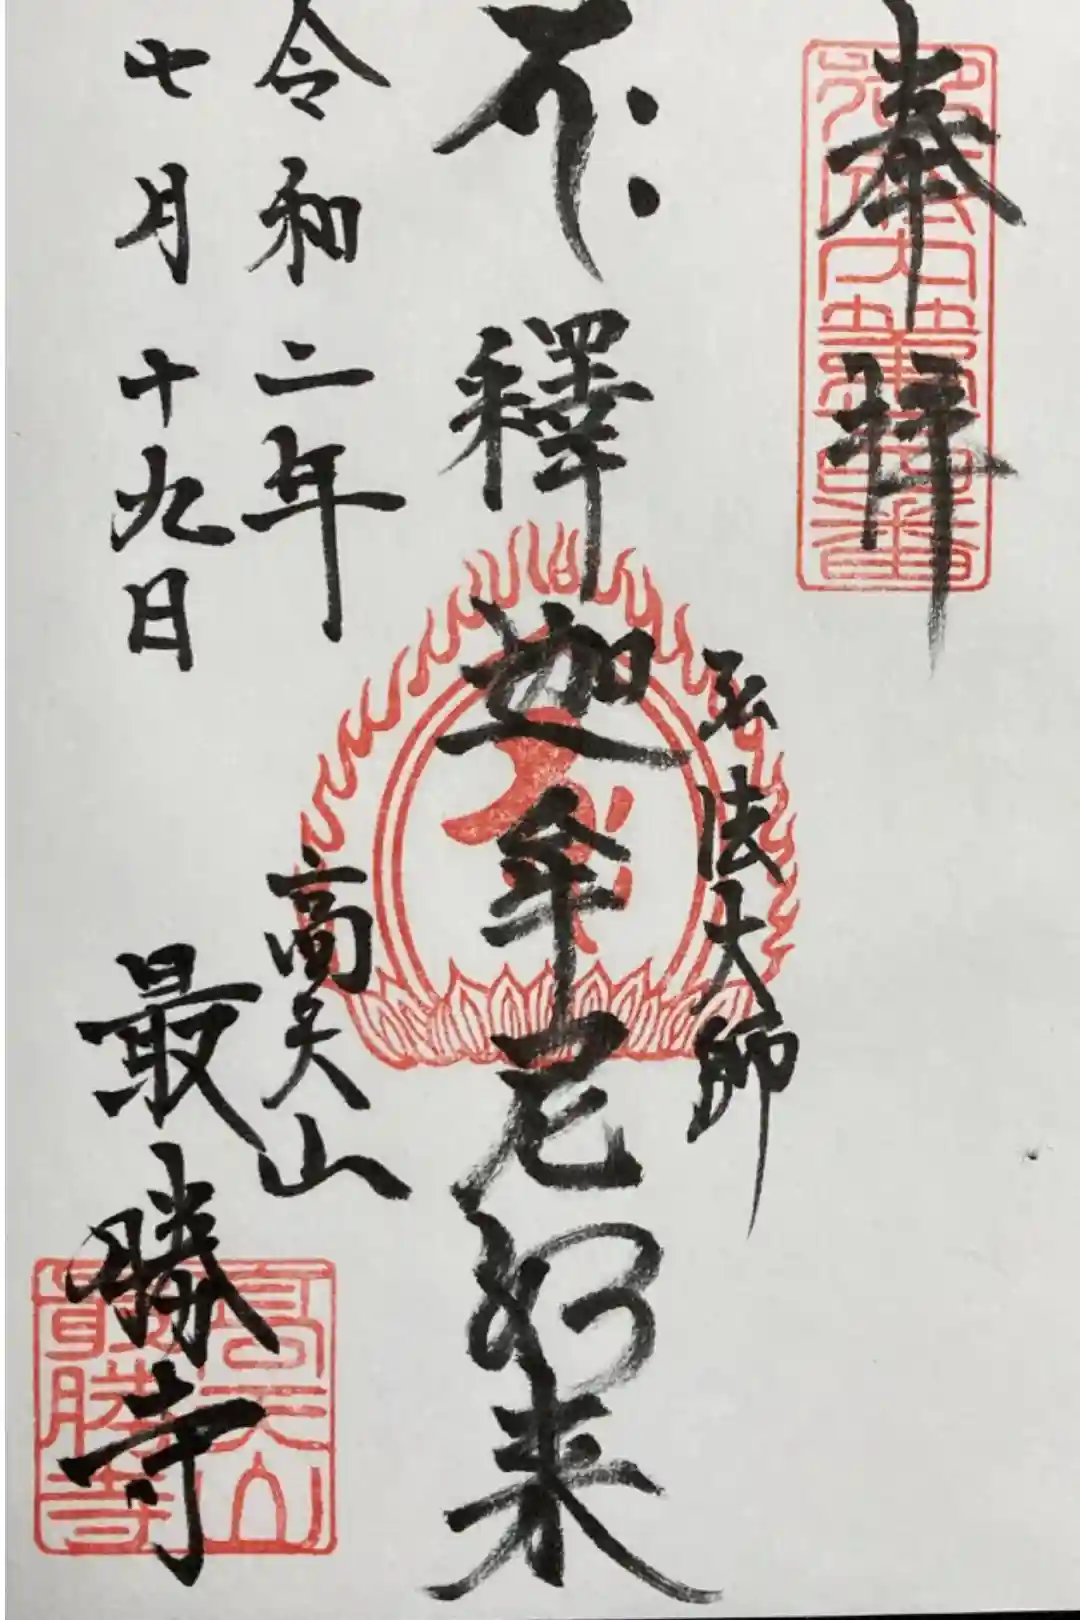 奉拝
弘法大師
釋迦牟尼如来
令和二年
七月十九日
高天山
最勝寺
高天山
最勝寺